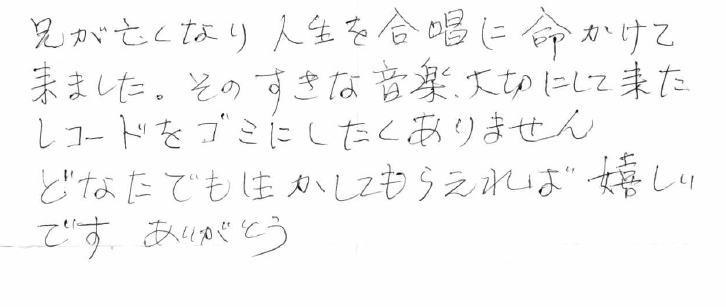 兄が亡くなり 人生を合唱に命かけて
来ました。そのすきな音楽、大切にして来た
レコードをゴミにしたくありません
どなたでも生かしてもらえれば 嬉しい
です ありがとう